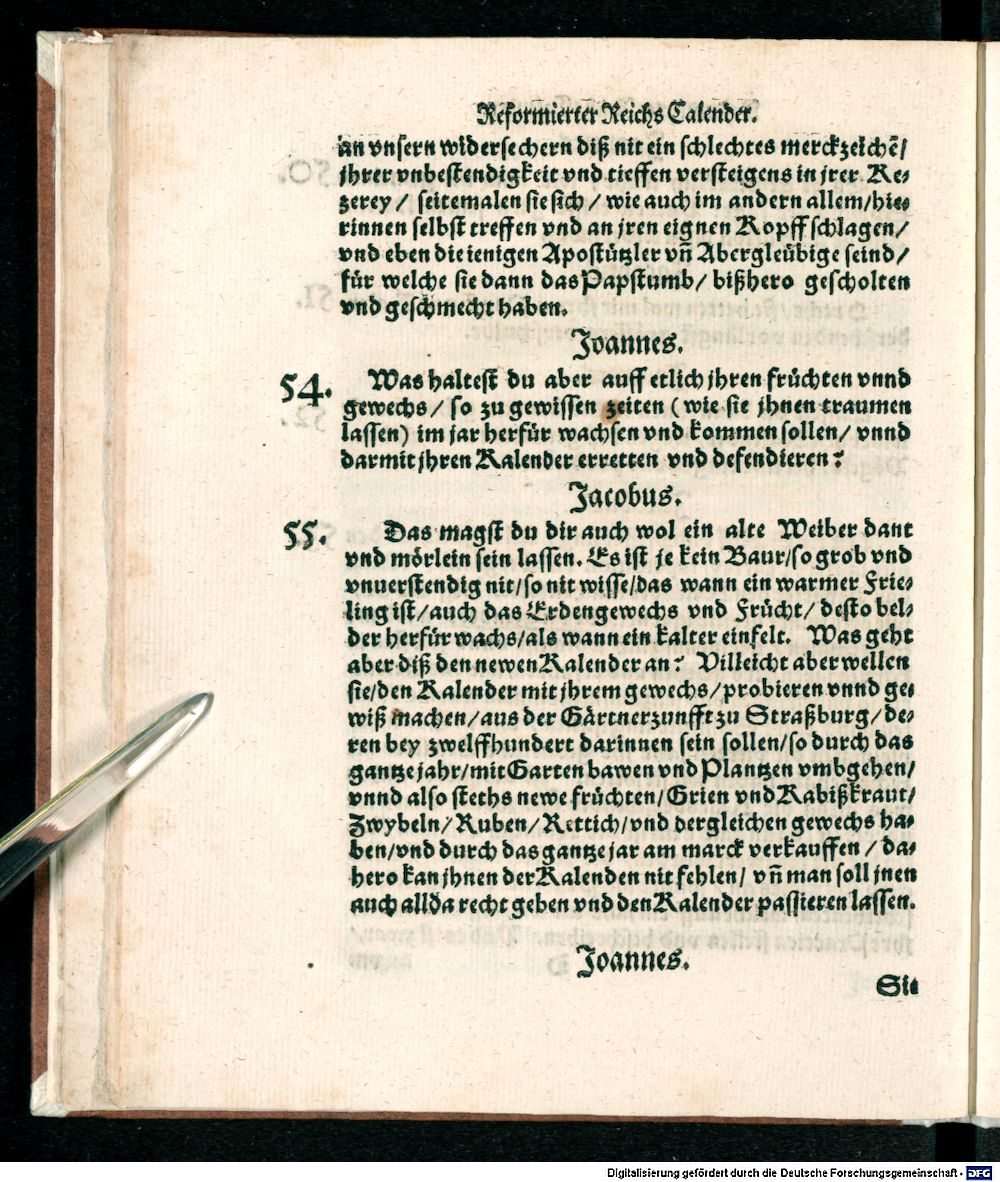 Reformierter Reichs Calender.
an vnsern widersechern diß nit ein schlechtes merckzeichẽ/
jhrer vnbestendigkeit vnd tieffen versteigens in jrer Ke⸗
zerey / seitemalen sie sich / wie auch im andern allem/hie⸗
rinnen selbst treffen vnd an jren eignen Kopff schlagen/
vnd eben die ienigen Apostützler vñ Abergleübige seind/
für welche sie dann das Papstumb/ bißhero gescholten
vnd geschmecht haben.
Joannes.
54. Was haltest du aber auff etlich jhren früchten vnnd
gewechs/ so zu gewissen zeiten ( wie sie jhnen traumen
lassen) im jar herfür wachsen vnd kommen sollen/ vnnd
darmit jhren Kalender erretten vnd defendieren?
Jacobus.
55. Das magst du dir auch wol ein alte Weiber dant
vnd mörlein sein lassen. Es ist je kein Baur/so grob vnd
vnuerstendig nit/so nit wisse/das wann ein warmer Frie⸗
ling ist/auch das Erdengewechs vnd Frücht/ desto bel⸗
der herfür wachs/als wann ein kalter einfelt. Was geht
aber diß den newen Kalender an? Villeicht aber wellen
sie/den Kalender mit jhrem gewechs/probieren vnnd ge⸗
wiß machen/aus der Gärtnerzunfft zu Straßburg/de⸗
ren bey zwelffhundert darinnen sein sollen/so durch das
gantze jahr/mit Garten bawen vnd Plantzen vmbgehen/
vnnd also steths newe früchten/Grien vnd Kabißkraut/
Zwybeln/Ruben/Rettich/vnd dergleichen gewechs ha⸗
ben/vnd durch das gantze jar am marck verkauffen / da⸗
hero kan jhnen der Kalenden nit fehlen/ vñ man soll jnen
auch allda recht geben vnd den Kalender passieren lassen.
Joannes.
Sie
Digitalisierung gefördert durch die Deutsche Forschungsgemeinschaft - DFG